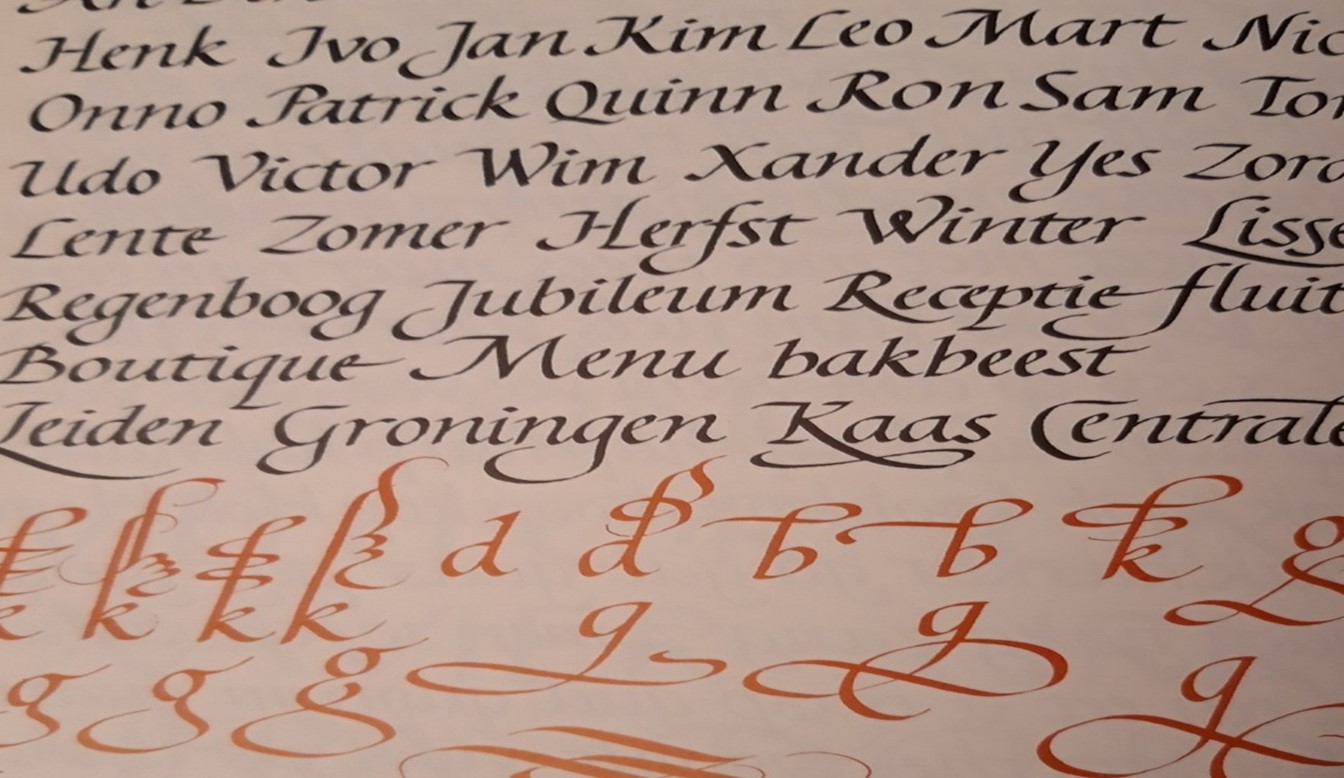 Henk Ivo Jan Kim Leo Mart
Onno Patrick Quinn Ron Sam
Udo Victor Wim Xander Yes
Lente Zomer Herfst Winter
Regenboog Jubileum Receptie
Boutique Menu bakbeest
Leiden Groningen Kaas
k k k k d d b b k g
g g
g g g g